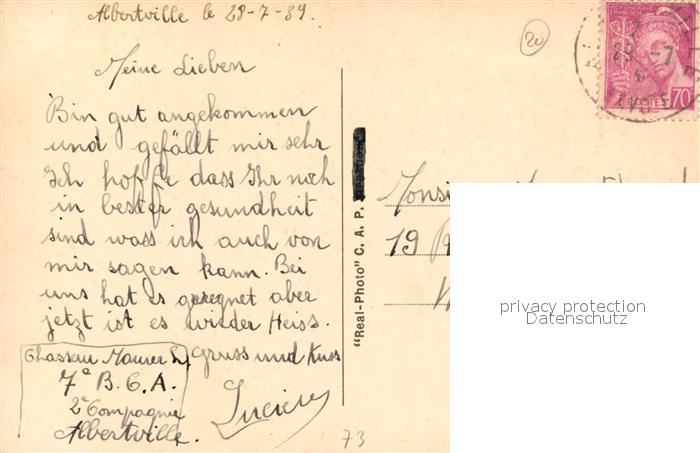 Albertville le 28-7-39.
20
Meine Lieben
Bin gut angekommen
und gefällt mir sehr
Ich hoffe dass Ihr noch
in bester gesundheit
sind wass ich auch von
mir sagen kann. Bei
uns hat es geregnet aber
jetzt ist es wieder Heiss.
Gruss und Kuss
Lucien
Chasseur Maurer L.
7e B.C.A.
2e Compagnie
Albertville.
73
"Real-Photo" C. A. P.
POSTES
70c
29 -7
19
privacy protection
Datenschutz